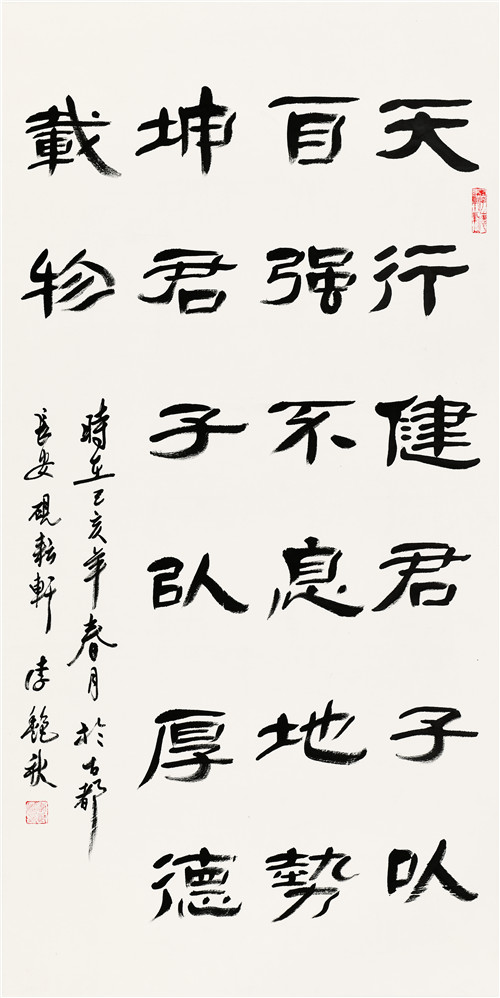 天行健君子以
自强不息地势
坤君子以厚德
載物
時在己亥年春月於古都
長安硯耘軒李艳秋